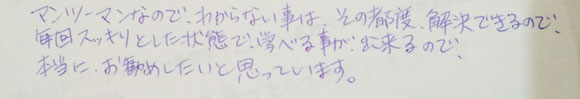 マンツーマンなので、わからない事は、その都度、解決できるので、
毎回スッキリとした状態で、学べる事が、出来るので、
本当に、お勧めしたいと思っています。